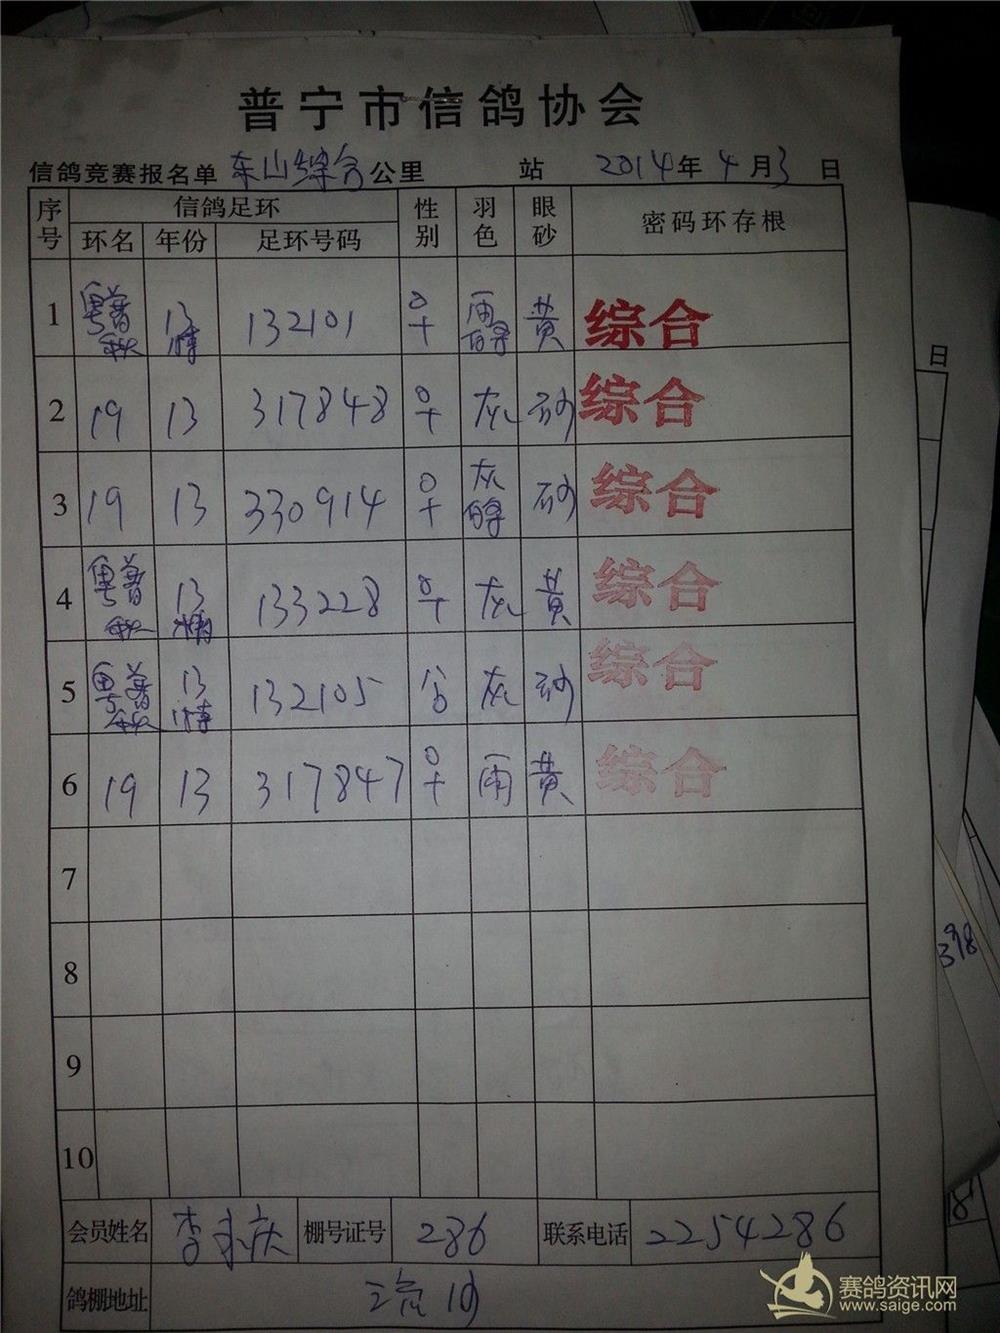 普宁市信鸽协会
信鸽竞赛报名单 东山综合 公里 站 2014年4月3日
序号 信鸽足环 性别 羽色 眼砂 密码环存根
环名 年份 足环号码
1 粤普 13 132101 ♀ 雨 黄 综合
2 19 13 317848 ♀ 灰 砂 综合
3 19 13 330914 ♀ 灰 砂 综合
4 粤普 13 133228 ♀ 灰 黄 综合
5 粤普 13 132105 灰 砂 综合
6 19 13 317847 ♀ 雨 黄 综合
7
8
9
10
会员姓名 李 庆 棚号证号 286 联系电话 2254286
鸽棚地址
日
398
18
赛鸽资讯网
www.saige.com